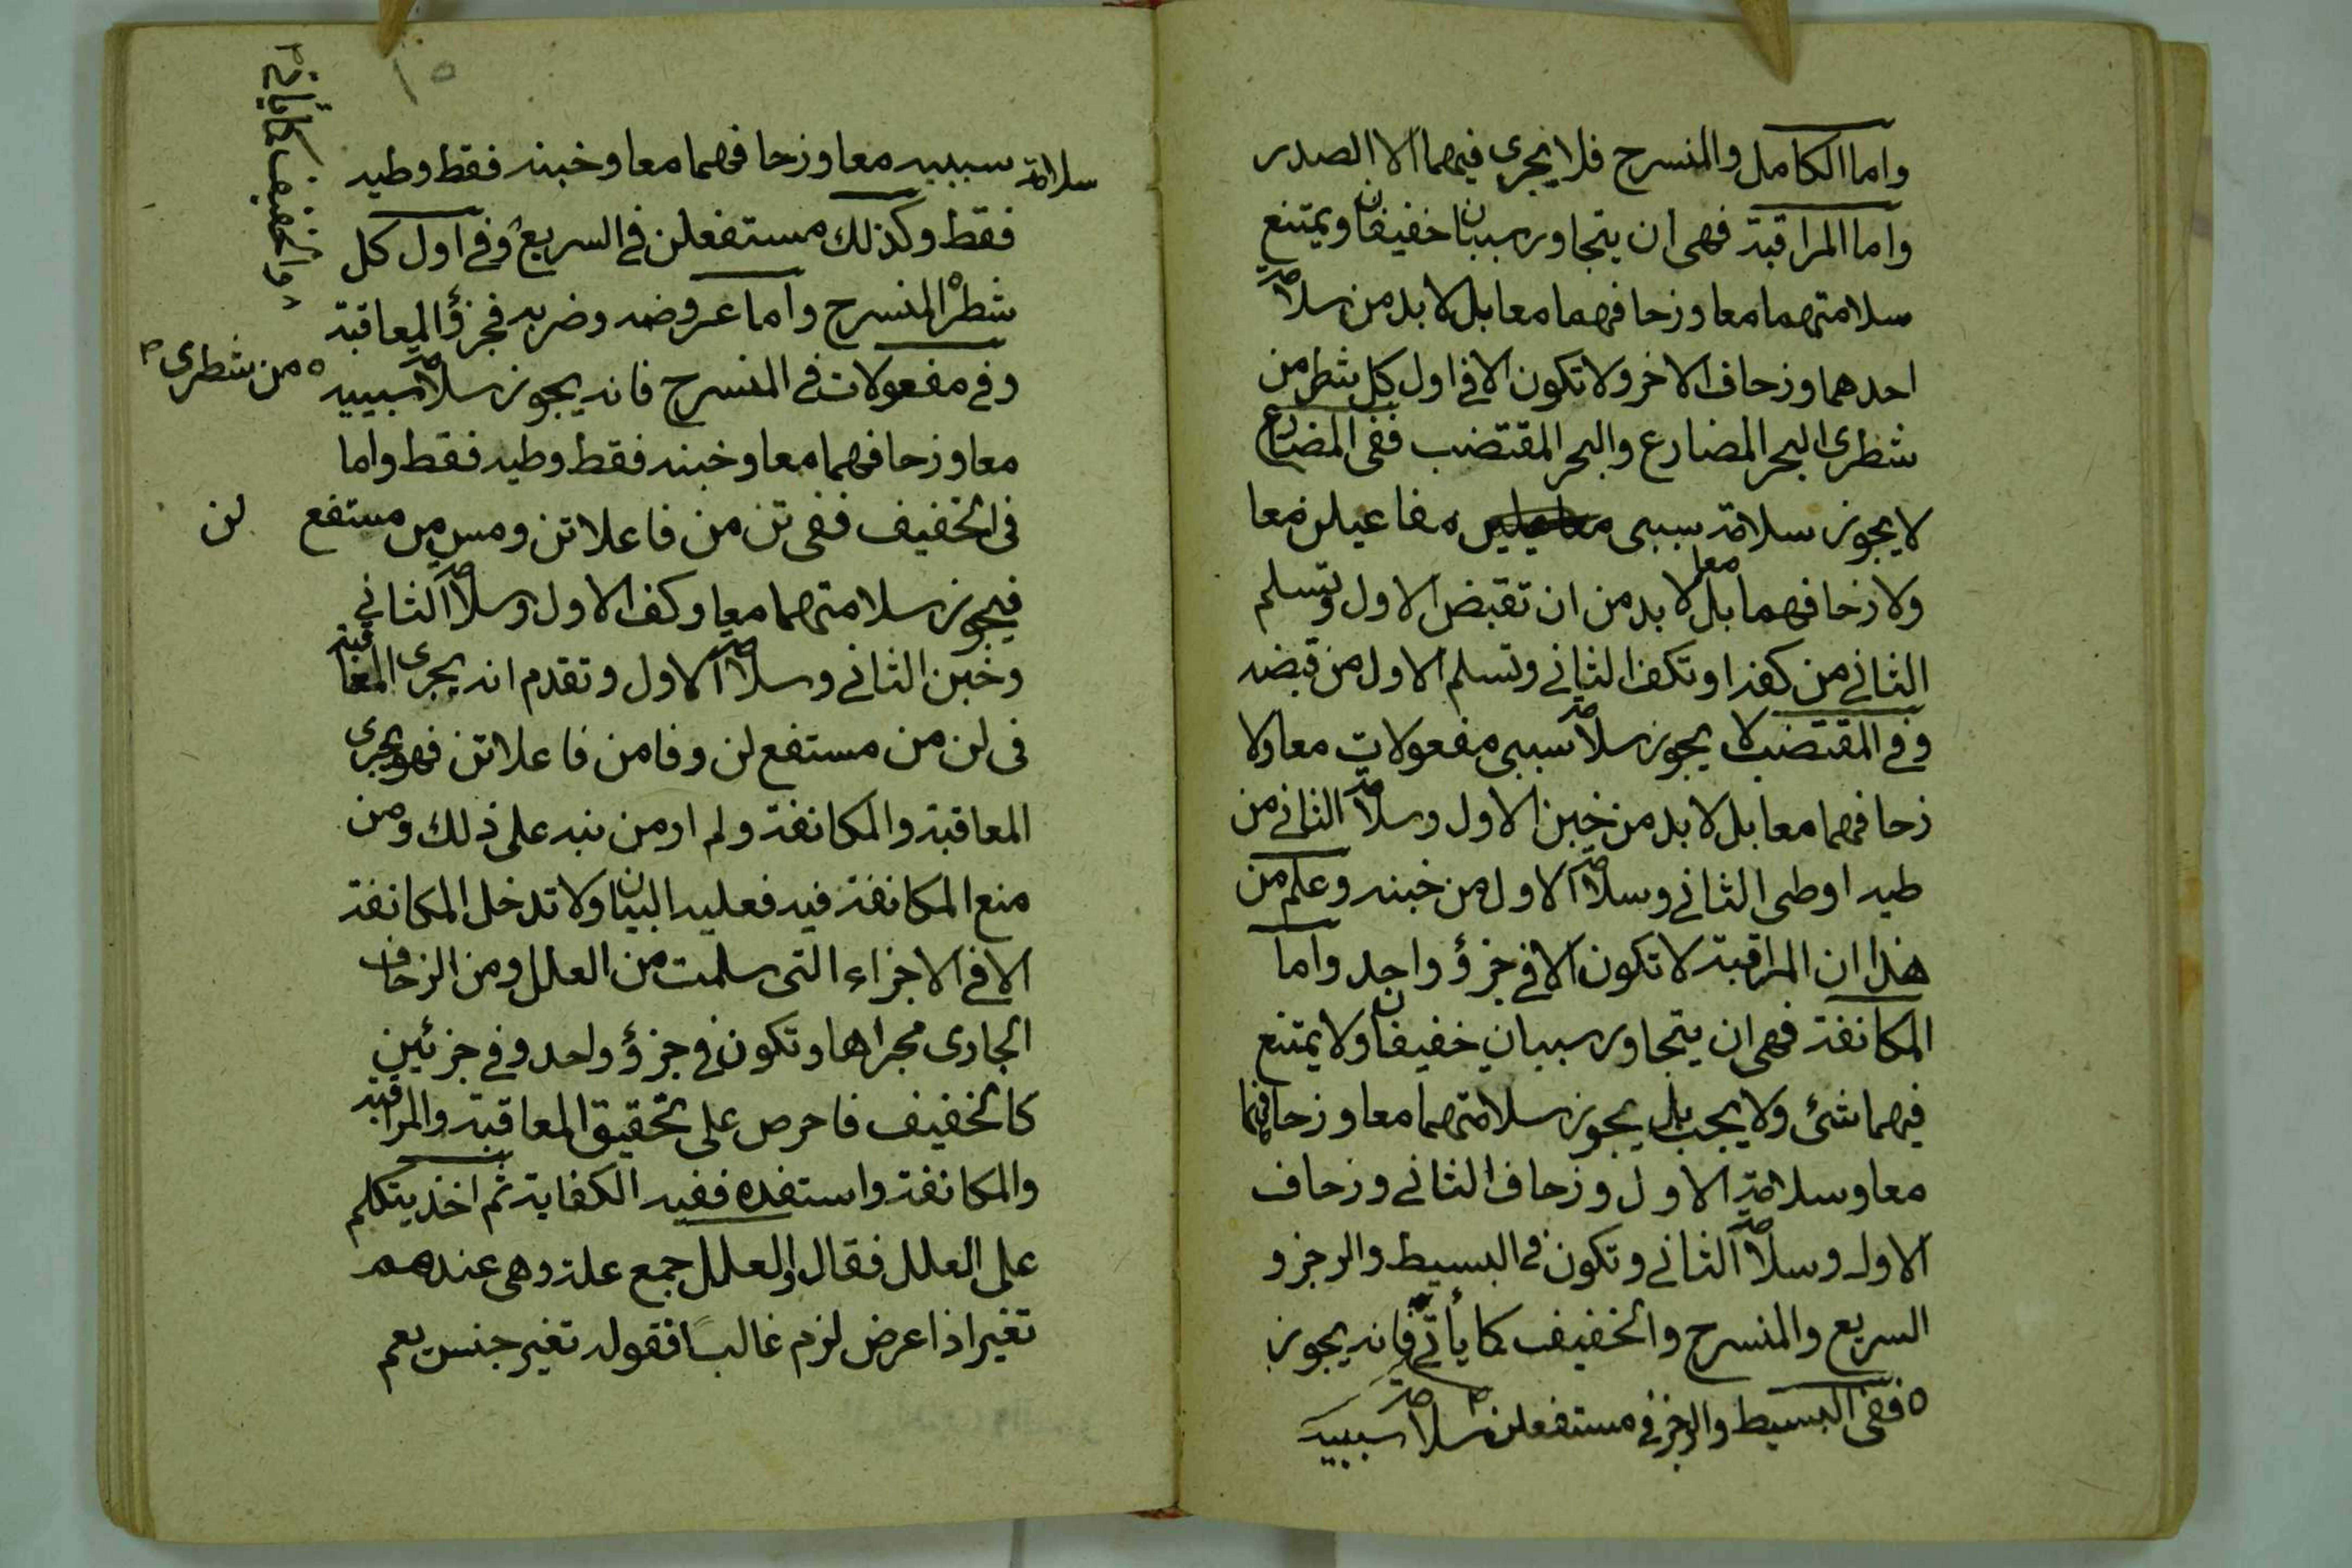 واما الكامل والمنسرح فلا يجرى فيهما الا الصدر
واما المراقبة فهى ان يتجاور سببان خفيفان ويمتنع
سلامتهما معا وزحافهما معا بل لا بد من سلامة
احدهما وزحاف الاخر ولا تكون الا فى اول كل شطر من
شطرى البحر المضارع والبحر المقتضب ففى المضارع
لا يجوز سلامة سببى مفاعيلن معا
ولا زحافهما معا بل لا بد من ان تقبض الاول وتسلم
الثانى من كفه او تكف الثانى وتسلم الاول من قبضه
وفى المقتضب لا يجوز سلامة سببى مفعولات معا ولا
زحافهما معا بل لا بد من خبن الاول وسلامة الثانى من
طيه او طى الثانى وسلامة الاول من خبنه وعلم من
هذا ان المراقبة لا تكون الا فى جزؤ واحد واما
المكانفة فهى ان يتجاور سببان خفيفان ولا يمتنع
فيهما شئ ولا يجب بل يجوز سلامتهما معا وزحافهما
معا وسلامة الاول وزحاف الثانى وزحاف
الاول وسلامة الثانى وتكون فى البسيط والرجز و
السريع والمنسرح والخفيف كما يأتى فانه يجوز
ففى البسيط والرجز فى مستفعلن سلامة سببيه
١٥
سلامة سببيه معا وزحافهما معا وخبنه فقط وطيه
فقط وكذلك مستفعلن فى السريع وفى اول كل
شطر المنسرح واما عروضه وضربه فجزؤ المعاقبة
من شطرى
وفى مفعولات فى المنسرح فانه يجوز سلامة سببيه
معا وزحافهما معا وخبنه فقط وطيه فقط واما
فى الخفيف ففى تن من فاعلاتن ومس من مستفع لن
فيجوز سلامتهما معا وكف الاول وسلامة الثانى
وخبن الثانى وسلامة الاول وتقدم انه يجرى المعاقبة
فى لن من مستفع لن وفا من فاعلاتن فهو يجرى
المعاقبة والمكانفة ولم ار من نبه على ذلك ومن
منع المكانفة فيه فعليه البيان ولا تدخل المكانفة
الا فى الاجزاء التى سلمت من العلل ومن الزحاف
الجارى مجراها وتكون فى جزؤ واحد وفى جزئين
كالخفيف فاحرص على تحقيق المعاقبة والمراقبة
والمكانفة واستفده ففيه الكفاية ثم اخذ يتكلم
على العلل فقال والعلل جمع علة وهى عندهم
تغير اذا عرض لزم غالبًا فقوله تغير جنس يعم